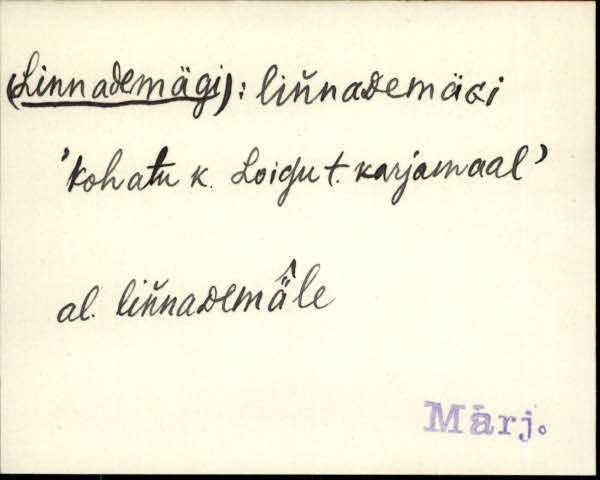 (Linnademägi): liňnaᴅemäɢi
'kohatu k. Loigu t. karjamaal'
al. liňnaᴅemä̂le
Märj.